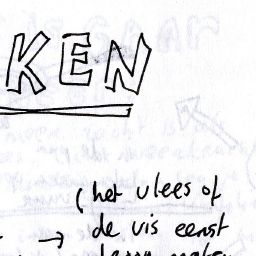 KEN
(het vlees of
→ de vis eerst